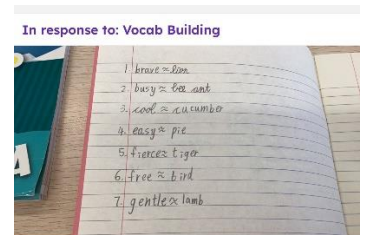 In response to: Vocab Building
1. brave ≈ lion
2. busy ≈ bee ant
3. cool ≈ cucumber
4. easy ≈ pie
5. fierce ≈ tiger
6. free ≈ bird
7. gentle ≈ lamb
A